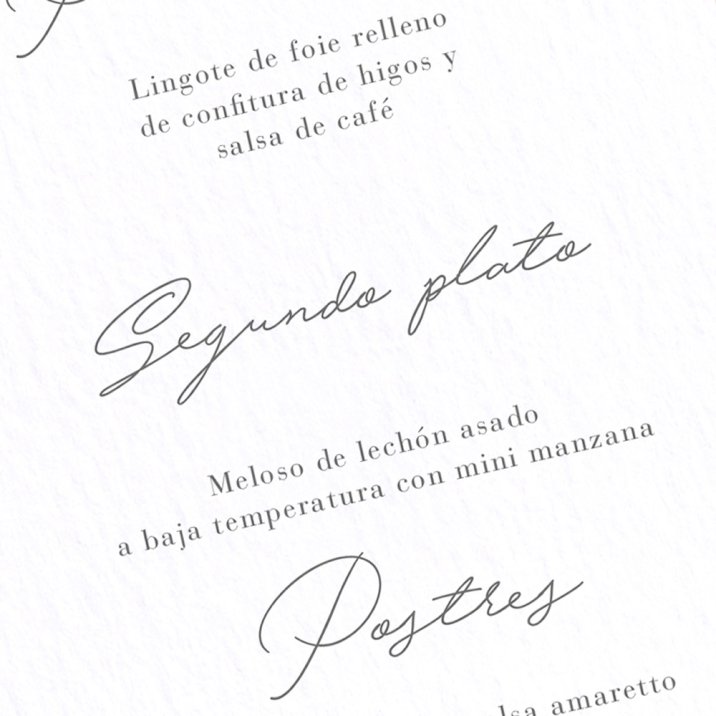 Lingote de foie relleno
de confitura de higos y
salsa de café
Segundo plato
Meloso de lechón asado
a baja temperatura con mini manzana
Postres
amaretto